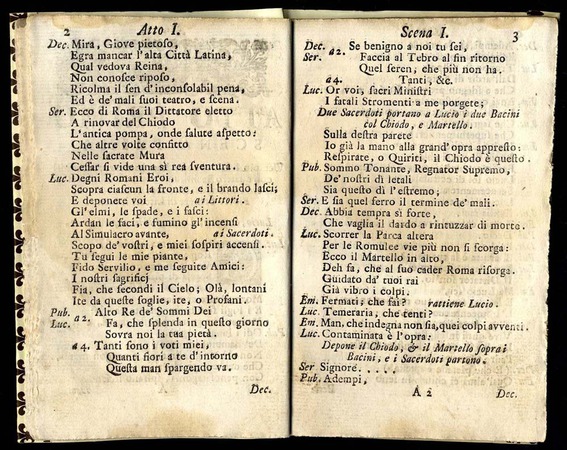 2 Atto I.
Dec. Mira, Giove pietoso,
Egra mancar l'alta Città Latina,
Qual vedova Reina,
Non conosce riposo,
Ricolma il sen d'inconsolabil pena,
Ed è de' mali suoi teatro, e scena.
Ser. Ecco di Roma il Dittatore eletto
A rinovar del Chiodo
L'antica pompa, onde salute aspetto:
Che altre volte confitto
Nelle sacrate Mura
Cessar si vide una sì rea sventura.
Luc. Degni Romani Eroi,
Scopra ciascun la fronte, e il brando lasci;
E deponete voi ai Littori.
Gl'elmi, le spade, e i fasci:
Ardan le faci, e fumino gl'incensi
Al Simulacro avante, ai Sacerdoti.
Scopo de' vostri, e miei sospiri accensi.
Tu segui le mie piante,
Fido Servilio, e me seguite Amici:
I nostri sagrificj
Fia, che secondi il Cielo; Olà, lontani
Ite da queste soglie, ite, o Profani.
Pub. Alto Re de' Sommi Dei
Luc. a2. Fa, che splenda in questo giorno
Sovra noi la tua pietà.
a4. Tanti sono i voti miei,
Quanti fiori a te d'intorno
Questa man spargendo va.
A Dec.
Scena I. 3
Dec. a2. Se benigno a noi tu sei,
Ser. Faccia al Tebro al fin ritorno
Quel seren, che più non ha.
a4. Tanti, &c.
Luc. Or voi, sacri Ministri
I fatali Stromenti a me porgete;
Due Sacerdoti portano a Lucio i due Bacini
col Chiodo, e Martello.
Sulla destra parete
Io già la mano alla grand'opra appresto:
Respirate, o Quiriti, il Chiodo è questo.
Pub. Sommo Tonante, Regnator Supremo,
De' nostri dì letali
Sia questo dì l'estremo;
Ser. E sia quel ferro il termine de' mali.
Dec. Abbia tempra sì forte,
Che vaglia il dardo a rintuzzar di morte.
Luc. Scorrer la Parca altera
Per le Romulee vie più non si scorga:
Ecco il Martello in alto,
Deh fa, che al suo cader Roma risorga.
Guidato da' tuoi rai
Già vibro i colpi.
Em. Fermati; che fai? rattiene Lucio.
Luc. Temeraria, che tenti?
Em. Man, che indegna non sia, quei colpi avventi.
Luc. Contaminata è l'opra:
Depone il Chiodo, & il Martello sopra i
Bacini, e i Sacerdoti partono.
Ser Signore. . . . .
Pub. Adempi,
A 2 Dec.